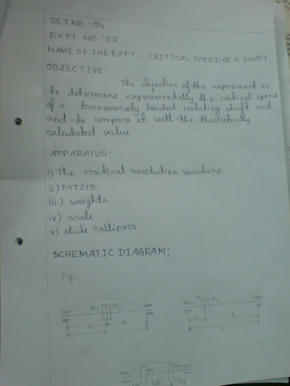 SET NO.: 04
EXPT. NO: 02
NAME OF THE EXPT.: CRITICAL SPEED OF A SHAFT
OBJECTIVE:
The objective of the experiment is
to determine experimentally the critical speed
of a transversely loaded rotating shaft and
and to compare it with the theoretically
calculated value
APPARATUS:
i) The critical revolution machine
ii) MT215
iii) weights
iv) scale
v) slide callipers
SCHEMATIC DIAGRAM:
Fig.